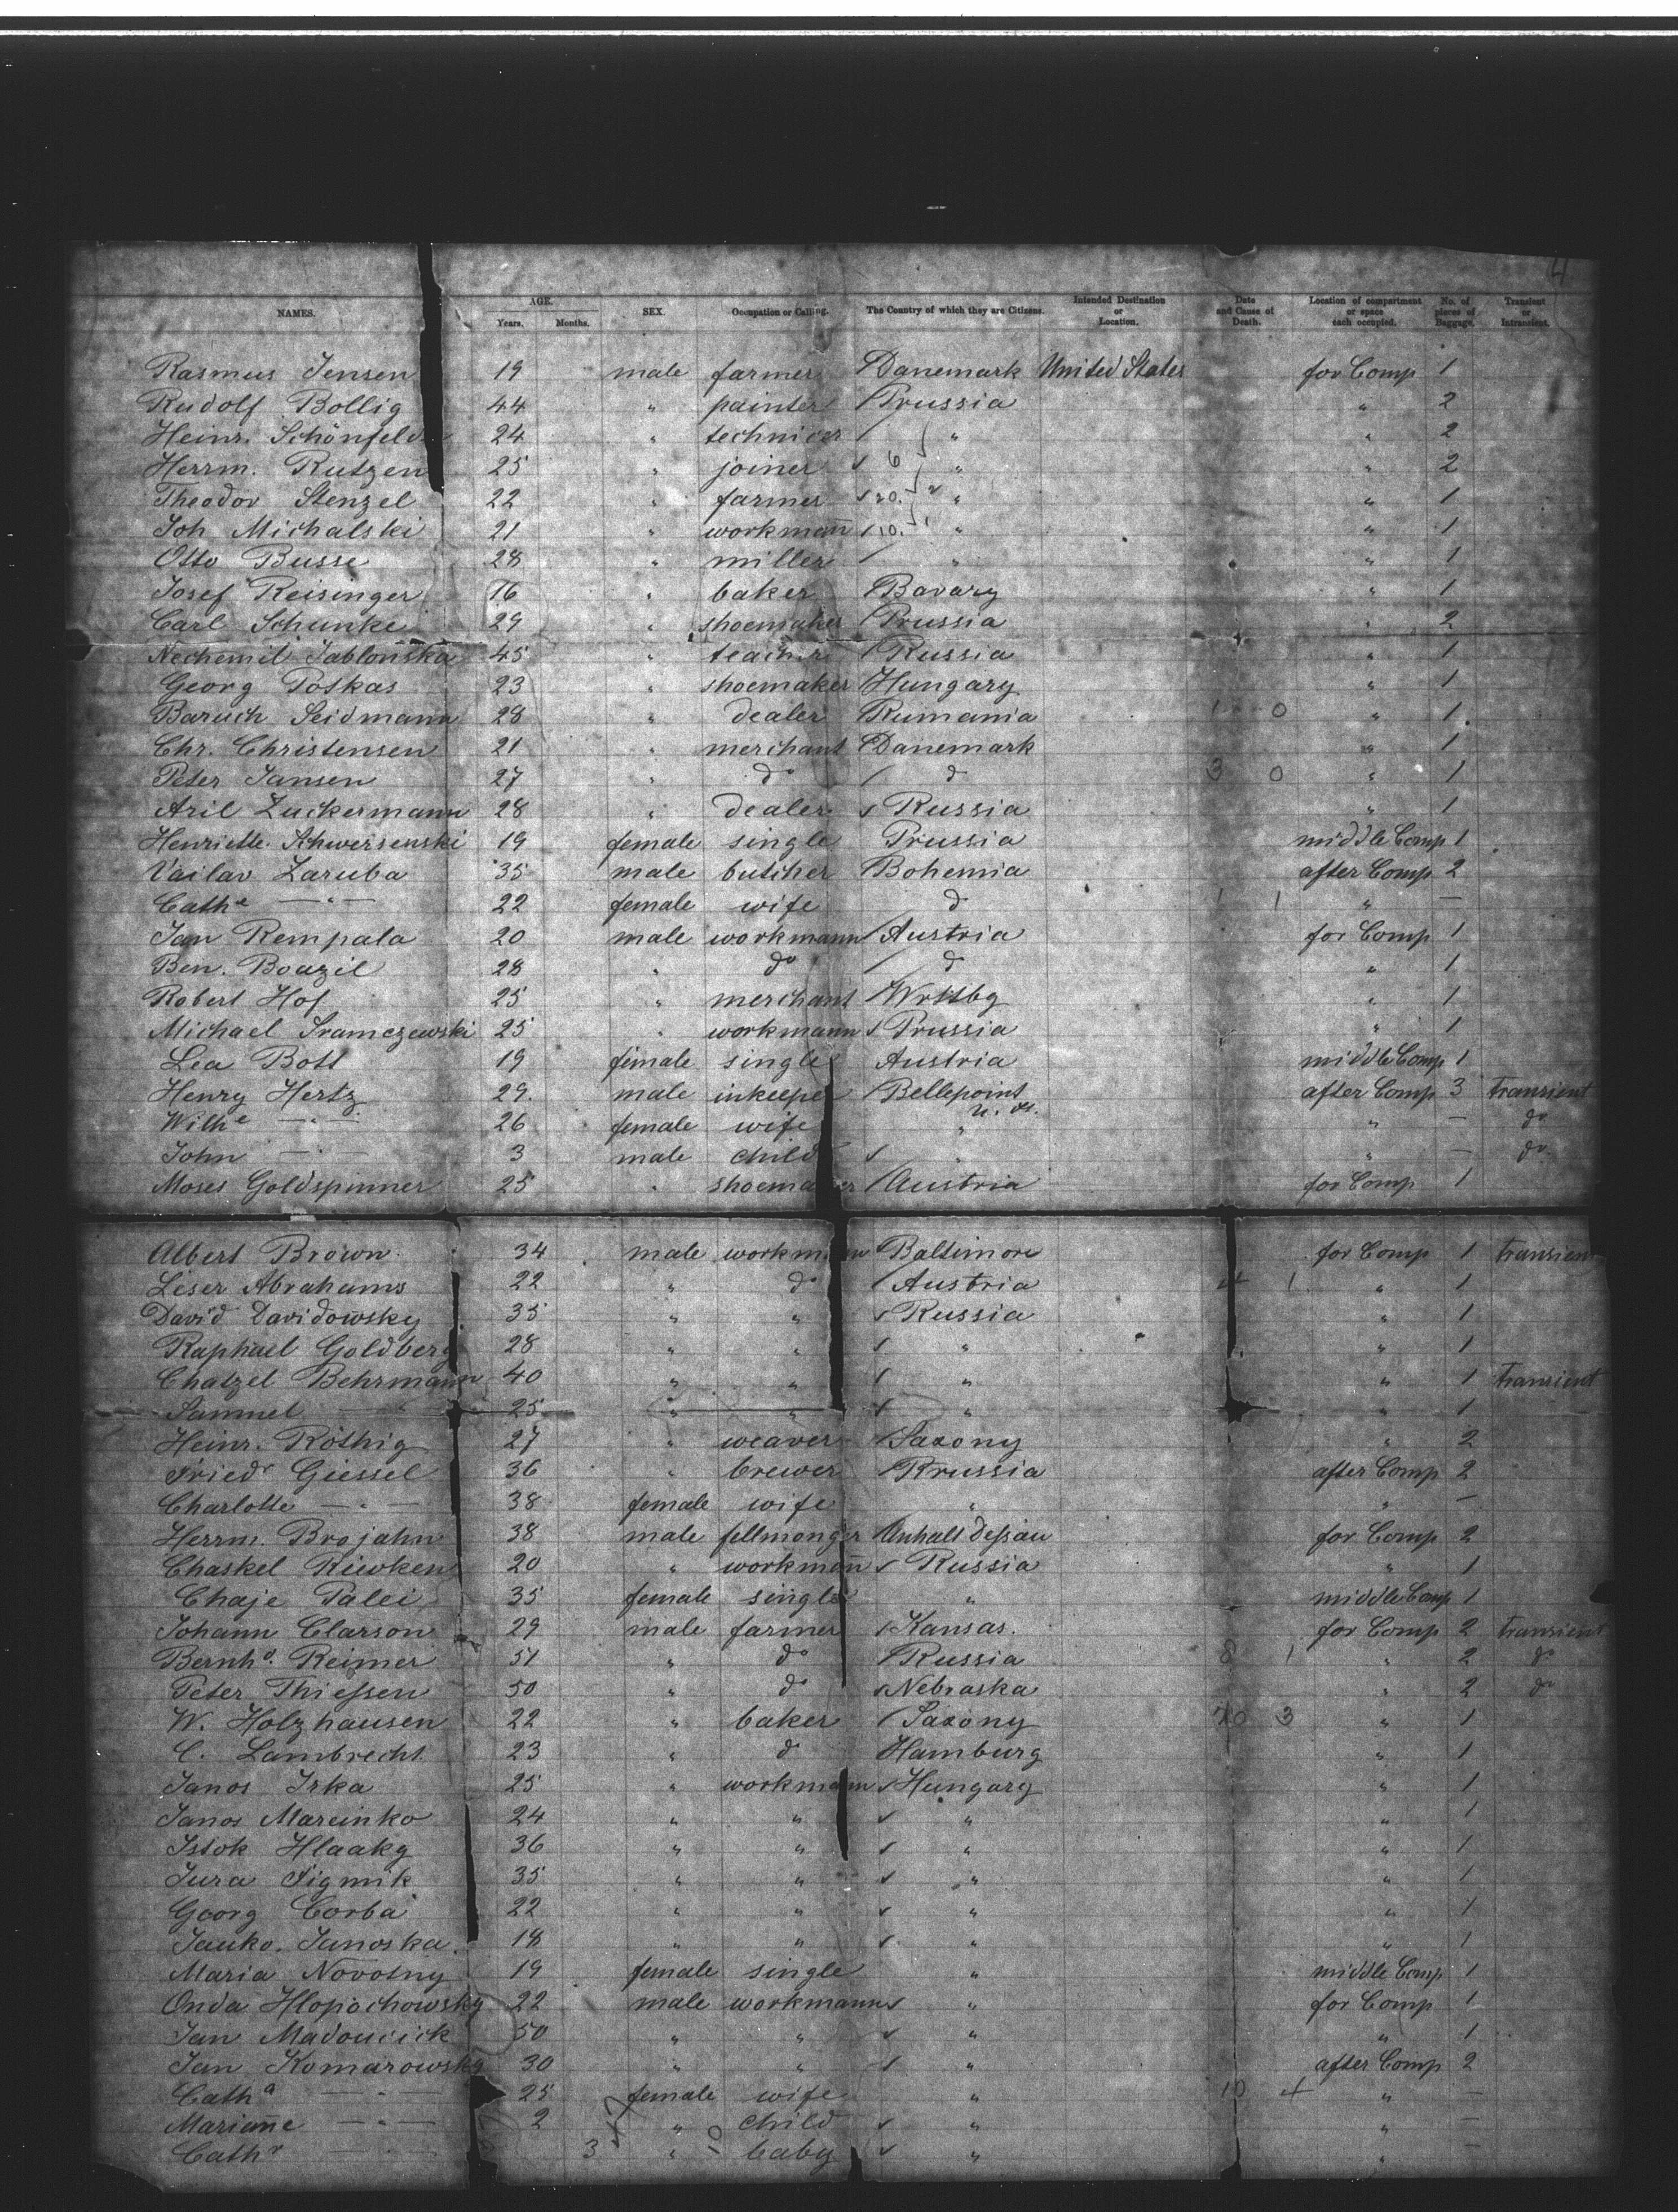 4
NAMES. AGE. Years. Months. SEX. Occupation or Calling. The Country of which they are Citizens. Intended Destination or Location. Date and Cause of Death. Location of compartment or space each occupied. No. of pieces of Baggage. Transient or Intransient.
Rasmus Jensen 19 male farmer Danemark United States for Comp 1
Rudolf Bollig 44 " painter Prussia " 2
Heinr. Schönfeld 24 " technicer " " 2
Herrm. Rutzen 25 " joiner 6 " " 2
Theodor Stenzel 22 " farmer 20. " " 1
Joh Michalski 21 " workman̄ 10. " " 1
Otto Busse 28 " miller " " 1
Josef Reisinger 16 " baker Bavary " 1
Carl Schunke 29 " shoemaker Prussia " 2
Nechemil Jablonska 45 " teacher Russia " 1
Georg Poskas 23 " shoemaker Hungary " 1
Baruch Seidmann 28 " dealer Rumania 1 0 " 1
Chr. Christensen 21 " merchant Danemark " 1
Peter Jansen 27 " do do 3 0 " 1
Aril Zuckermann 28 " dealer Russia " 1
Henriette Schwersenski 19 female single Prussia middle Comp 1
Vailav Zaruba 35 male butcher Bohemia after Comp 2
Cathe — " — 22 female wife do 1 1 " —
Jan Rempala 20 male workmann Austria for Comp 1
Ben. Boazil 28 " do do " 1
Robert Hof 25 " merchant Wrttbg " 1
Michael Sramczewski 25 " workmann Prussia " 1
Lea Bott 19 female single Austria middle Comp 1
Henry Hertz 29 male inkeeper Bellepoint after Comp 3 transient
u. St.
Wilhe — " — 26 female wife " " — do
John — " — 3 male child " " — do
Moses Goldspinner 25 " shoemaker Austria for Comp 1
Albert Brown 34 male workmann Baltimore for Comp 1 transient
Leser Abrahams 22 " do Austria 4 1 " 1
David Davidowsky 35 " " Russia " 1
Raphael Goldberg 28 " " " " 1
Chatzel Behrmann 40 " " " " 1 transient
Samuel — " — 25 " " " " 1
Heinr. Röthig 27 " weaver Saxony " 2
Friedr Giessel 36 " brewer Prussia after Comp 2
Charlotte — " — 38 female wife " " —
Herrm. Brojahn 38 male fellmonger Anhalt Deßau for Comp 2
Chaskel Riewken 20 " workman̄ Russia " 1
Chaje Palei 35 female single " middle Comp 1
Johann Clarson 29 male farmer Kansas. for Comp 2 transient
Bernhd. Reimer 51 " do Russia 8 1 " 2 do
Peter Thießen 50 " do Nebraska " 2 do
W. Holzhausen 22 " baker Saxony 20 3 " 1
C. Lambrecht 23 " do Hamburg " 1
Janos Irka 25 " workmann Hungary " 1
Janos Mareinko 24 " " " " 1
Istok Hlaaky 36 " " " " 1
Jura Figmik 35 " " " " 1
Georg Corba 22 " " " " 1
Janko. Janoska 18 " " " " 1
Maria Novotny 19 female single " middle Comp 1
Onda Hlopochowsky 22 male workmann " for Comp 1
Jan Madoucick 50 " " " " 1
Jan Komarowsky 30 " " " after Comp 2
Catha — " — 25 female wife " 10 4 " —
Marian̄e — " — 2 " child " " —
Cathr — " — 3 " 10 baby " " —